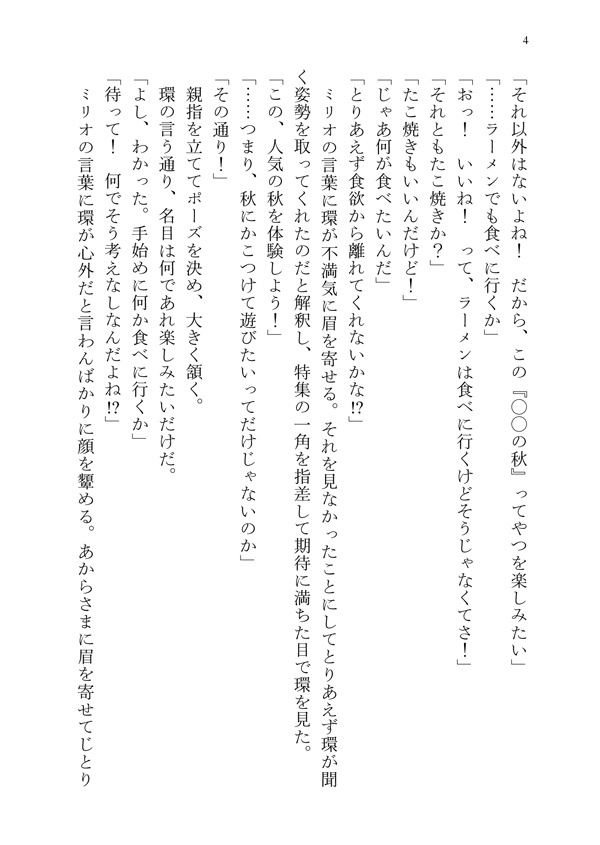 4
「それ以外はないよね！　だから、この『〇〇の秋』ってやつを楽しみたい」
「……ラーメンでも食べに行くか」
「おっ！　いいね！　って、ラーメンは食べに行くけどそうじゃなくてさ！」
「それともたこ焼きか？」
「たこ焼きもいいんだけど！」
「じゃあ何が食べたいんだ」
「とりあえず食欲から離れてくれないかな!?」
　ミリオの言葉に環が不満気に眉を寄せる。それを見なかったことにしてとりあえず環が聞
く姿勢を取ってくれたのだと解釈し、特集の一角を指差して期待に満ちた目で環を見た。
「この、人気の秋を体験しよう！」
「……つまり、秋にかこつけて遊びたいってだけじゃないのか」
「その通り！」
　親指を立ててポーズを決め、大きく頷く。
　環の言う通り、名目は何であれ楽しみたいだけだ。
「よし、わかった。手始めに何か食べに行くか」
「待って！　何でそう考えなしなんだよね!?」
　ミリオの言葉に環が心外だと言わんばかりに顔を顰める。あからさまに眉を寄せてじとり